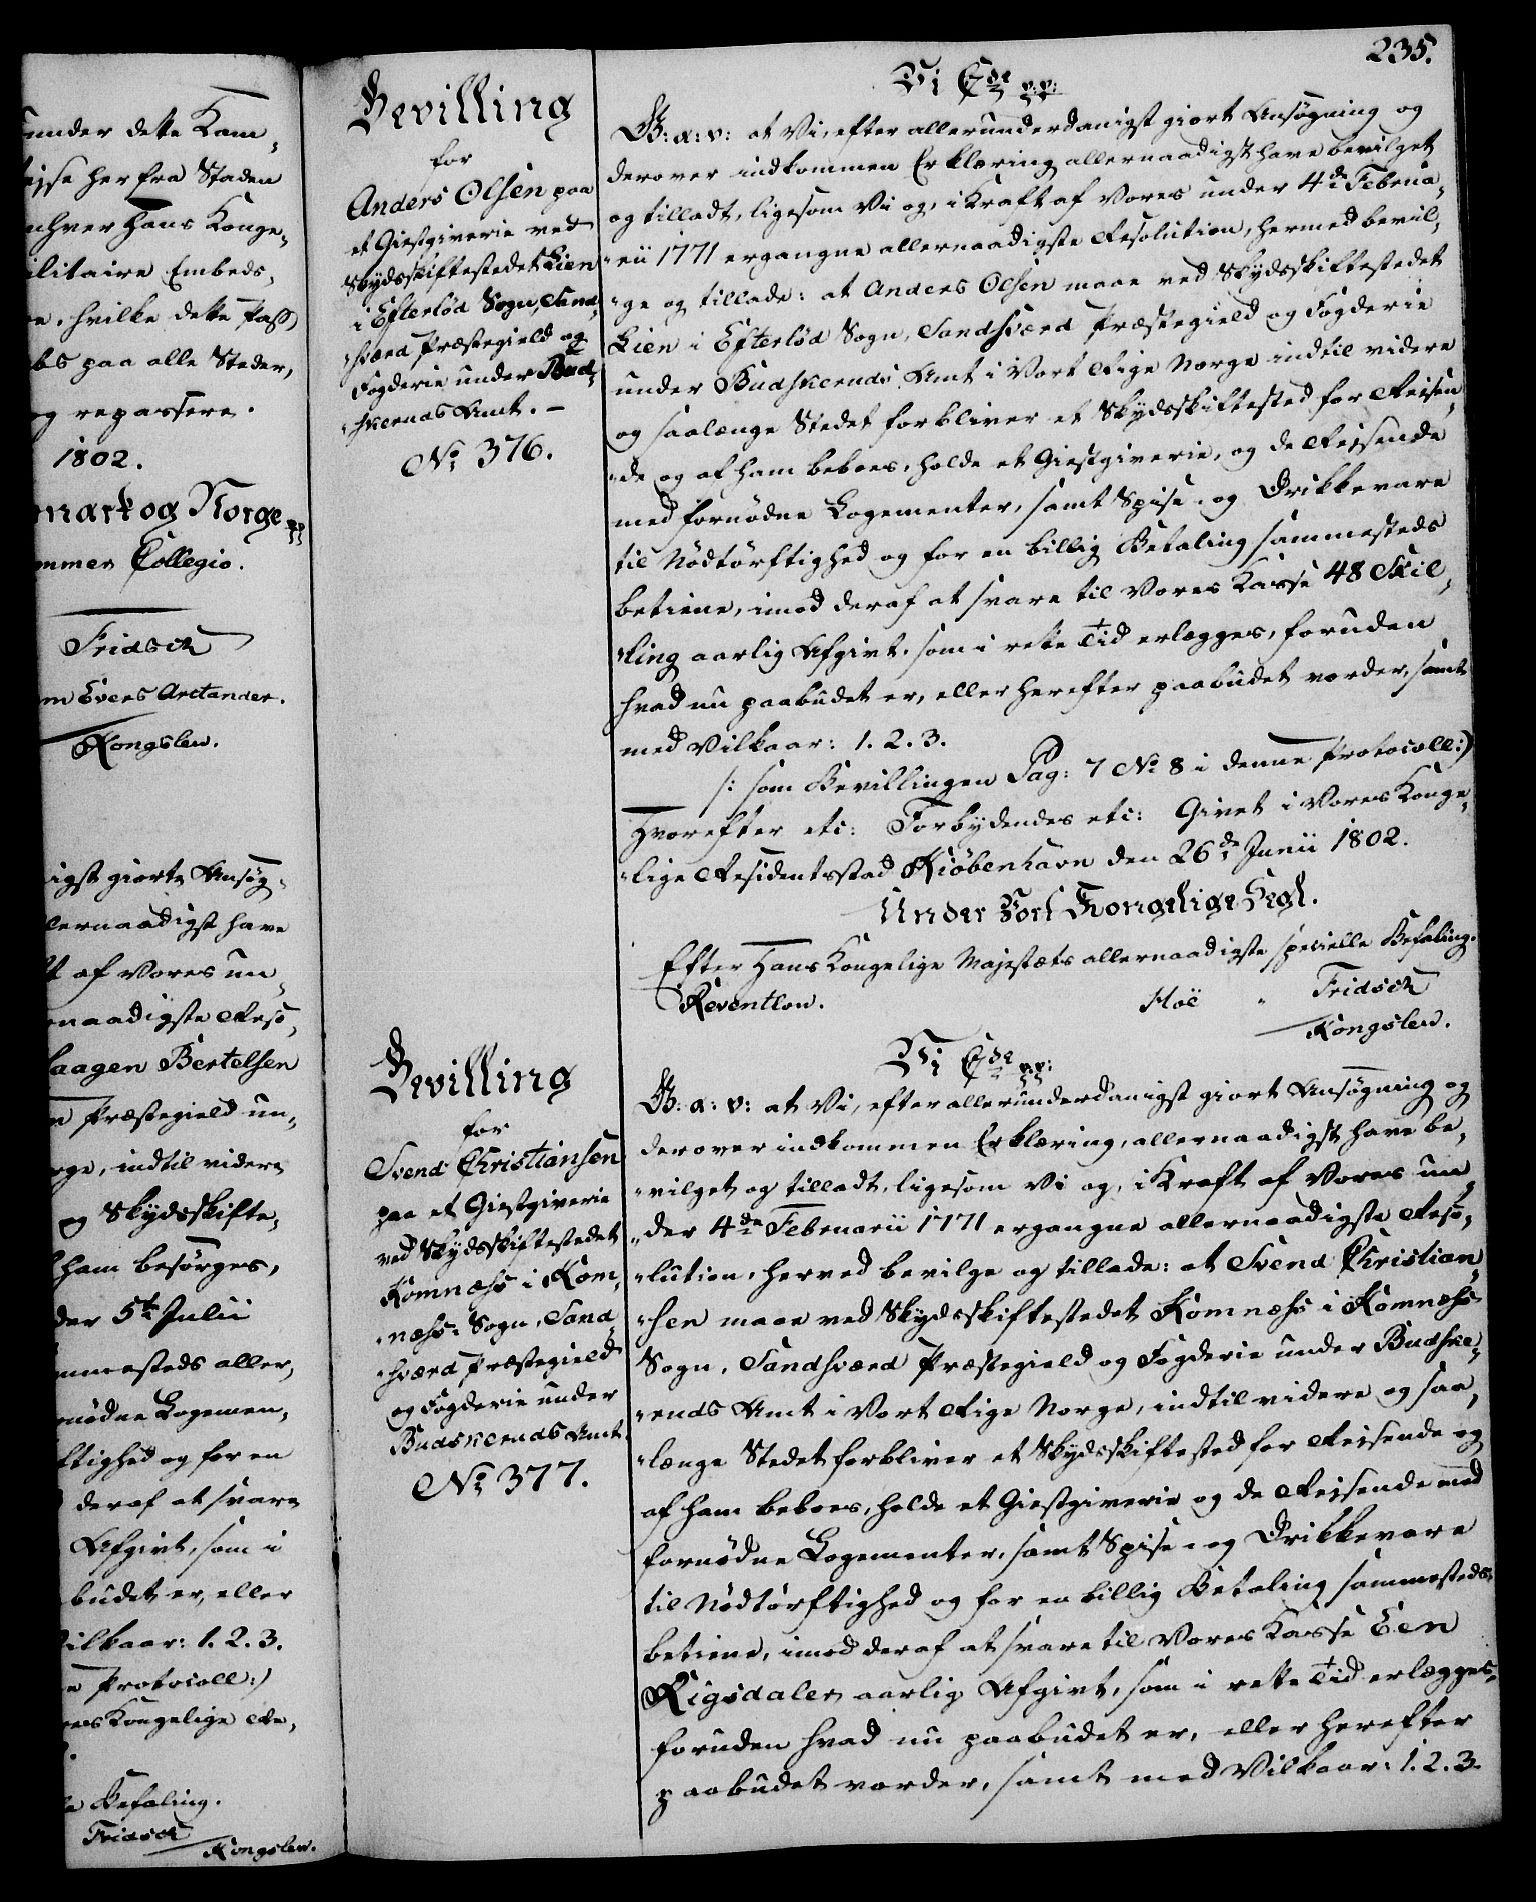 under dette Kam-
rejse her fra Staden
enhver Hans Konge-
militaire Embeds-
hvilke dette Pass
paa alle Steder,
og repassere.
1802.
Danmark og Norge
Kammer Collegio.
Fridsch
Evers Arctander.
Kongslew.
giorte Ansøg-
allernaadigst have
af Vores un-
allernaadigste Reso-
Haagen Bertelsen
Præstegield un-
Norge, indtil videre
og Skydsskifte-
ham besørges,
under 5te Julii
sammesteds aller-
fornødne Logemen-
Nødtørftighed og for en
deraf at svare
Afgivt, som i
paabudet er, eller
Vilkaar: 1. 2. 3.
denne Protocoll:)
Vores Kongelige Re-
Befaling.
Fridsch
Kongslew.
Bevilling
for
Anders Olsen paa
et Giestgiverie ved
Skydsskiftestedet Lien
i Efterlød Sogn, Sand-
sværd Præstegield og
Fogderie under Bud-
skeruds Amt. –
No 376.
Bevilling
for
Svend Christiansen
paa et Giestgiverie
ved Skydsskiftestedet
Komnæss i Kom-
næss Sogn, Sand-
sværd Præstegield
og Fogderie under
Budskeruds Amt.
No 377.
235.
Vi C 7de v: v:
G: a: v: at Vi, efter allerunderdanigst giort Ansøgning og
derover indkommen Erklæring allernaadigst have bevilget
og tilladt, ligesom Vi og, i Kraft af Vores under 4de Februa-
rii 1771 ergangne allernaadigste Resolution, hermed bevil-
ge og tillade: at Anders Olsen maae ved Skydsskiftestedet
Lien i Efterlød Sogn, Sandsværd Præstegield og Fogderie
under Budskeruds Amt i Vort Rige Norge indtil videre
og saalænge Stedet forbliver et Skydsskiftested for Reisen-
de og af ham beboes, holde et Giestgiverie, og de Reisende
med fornødne Logementer, samt Spise- og Drikkevare
til Nødtørftighed og for en billig Betaling sammesteds
betiene, imod deraf at svare til Vores Kasse 48 Skil-
ling aarlig Afgivt, som i rette Tid erlægges, foruden
hvad nu paabudet er, eller herefter paabudet vorder, samt
med Vilkaar: 1. 2. 3.
/: som Bevillingen Pag: 7 No 8 i denne Protocoll:)
Hvorefter etc: Forbydendes etc: Givet i Vores Konge-
lige Residentsstad Kiøbenhavn den 26de Junii 1802.
Under Vort Kongelige Segl.
Efter Hans Kongelige Majestæts allernaadigste specielle Befaling.
Reventlow. Hoë Fridsch
Kongslew.
Vi C 7de v: v:
G: a: v: at Vi, efter allerunderdanigst giort Ansøgning og
derover indkommen Erklæring, allernaadigst have be-
vilget og tilladt, ligesom Vi og, i Kraft af Vores un-
der 4de Februarii 1771 ergangne allernaadigste Reso-
lution, herved bevilge og tillade: at Svend Christian-
sen maae ved Skydsskiftestedet Komnæss i Komnæss
Sogn, Sandsværd Præstegield og Fogderie under Budske-
ruds Amt i Vort Rige Norge, indtil videre og saa-
længe Stedet forbliver et Skydsskiftested for Reisende og
af ham beboes, holde et Giestgiverie og de Reisende med
fornødne Logementer, samt Spise- og Drikkevare
til Nødtørftighed og for en billig Betaling sammesteds
betiene, imod deraf at svare til Vores Kasse Een
Rigsdaler aarlig Afgivt, som i rette Tid erlægges,
foruden hvad nu paabudet er, eller herefter
paabudet vorder, samt med Vilkaar: 1. 2. 3.